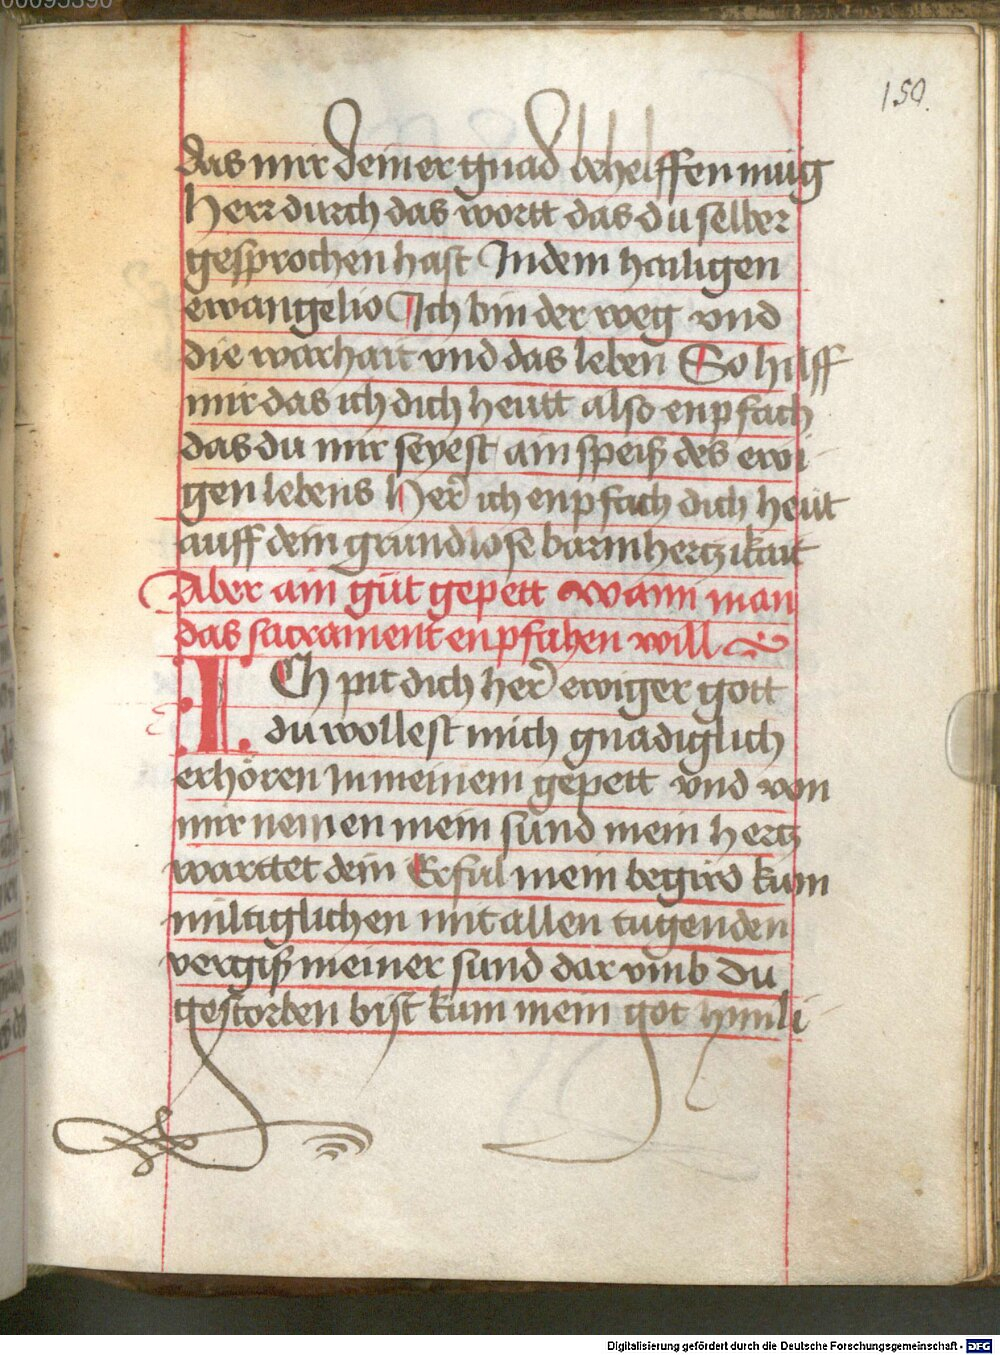 00095390
159.
das mir deiner gnad behelffen müg
Herr durch das wortt das du selber
gesprochen hast In dem hailigen
ewangelio Ich bin der weg vnd
die warhait vnd das leben So hilff
mir das ich dich heutt also enpfach
das du mir seyest ain speiß des ewi
gen lebens Her̄ ich enpfach dich heut
auff dein grundlose barmhertzikait
Aber ain gůt gepett wann man
das sacrament enpfahen will
ICh pit dich her̄ ewiger gott
du wollest mich gnadiglich
erhören In meinem gepett vnd von
mir nemen mein sünd mein hertz
warttet dein Erfül mein begird kum
miltiglichen mit allen tugenden
vergiß meiner sund dar vmb du
gestorben bist kum mein got himli
Digitalisierung gefördert durch die Deutsche Forschungsgemeinschaft - DFG